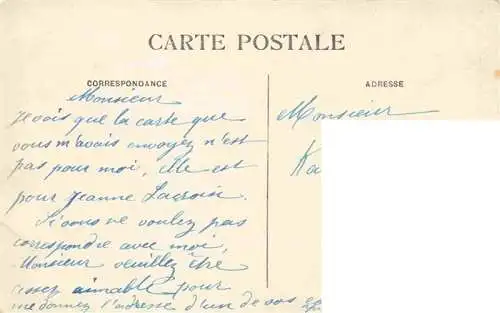 CARTE POSTALE
CORRESPONDANCE
Monsieur
Je vois que la carte que
vous m'avais envoyez n'est
pas pour moi, elle est
pour Jeanne Lacroix.
Si vous ne voulez pas
correspondre avec moi,
Monsieur veuillez être
assez aimable pour
me donnez l'adresse d'un de vos
ADRESSE
Monsieur